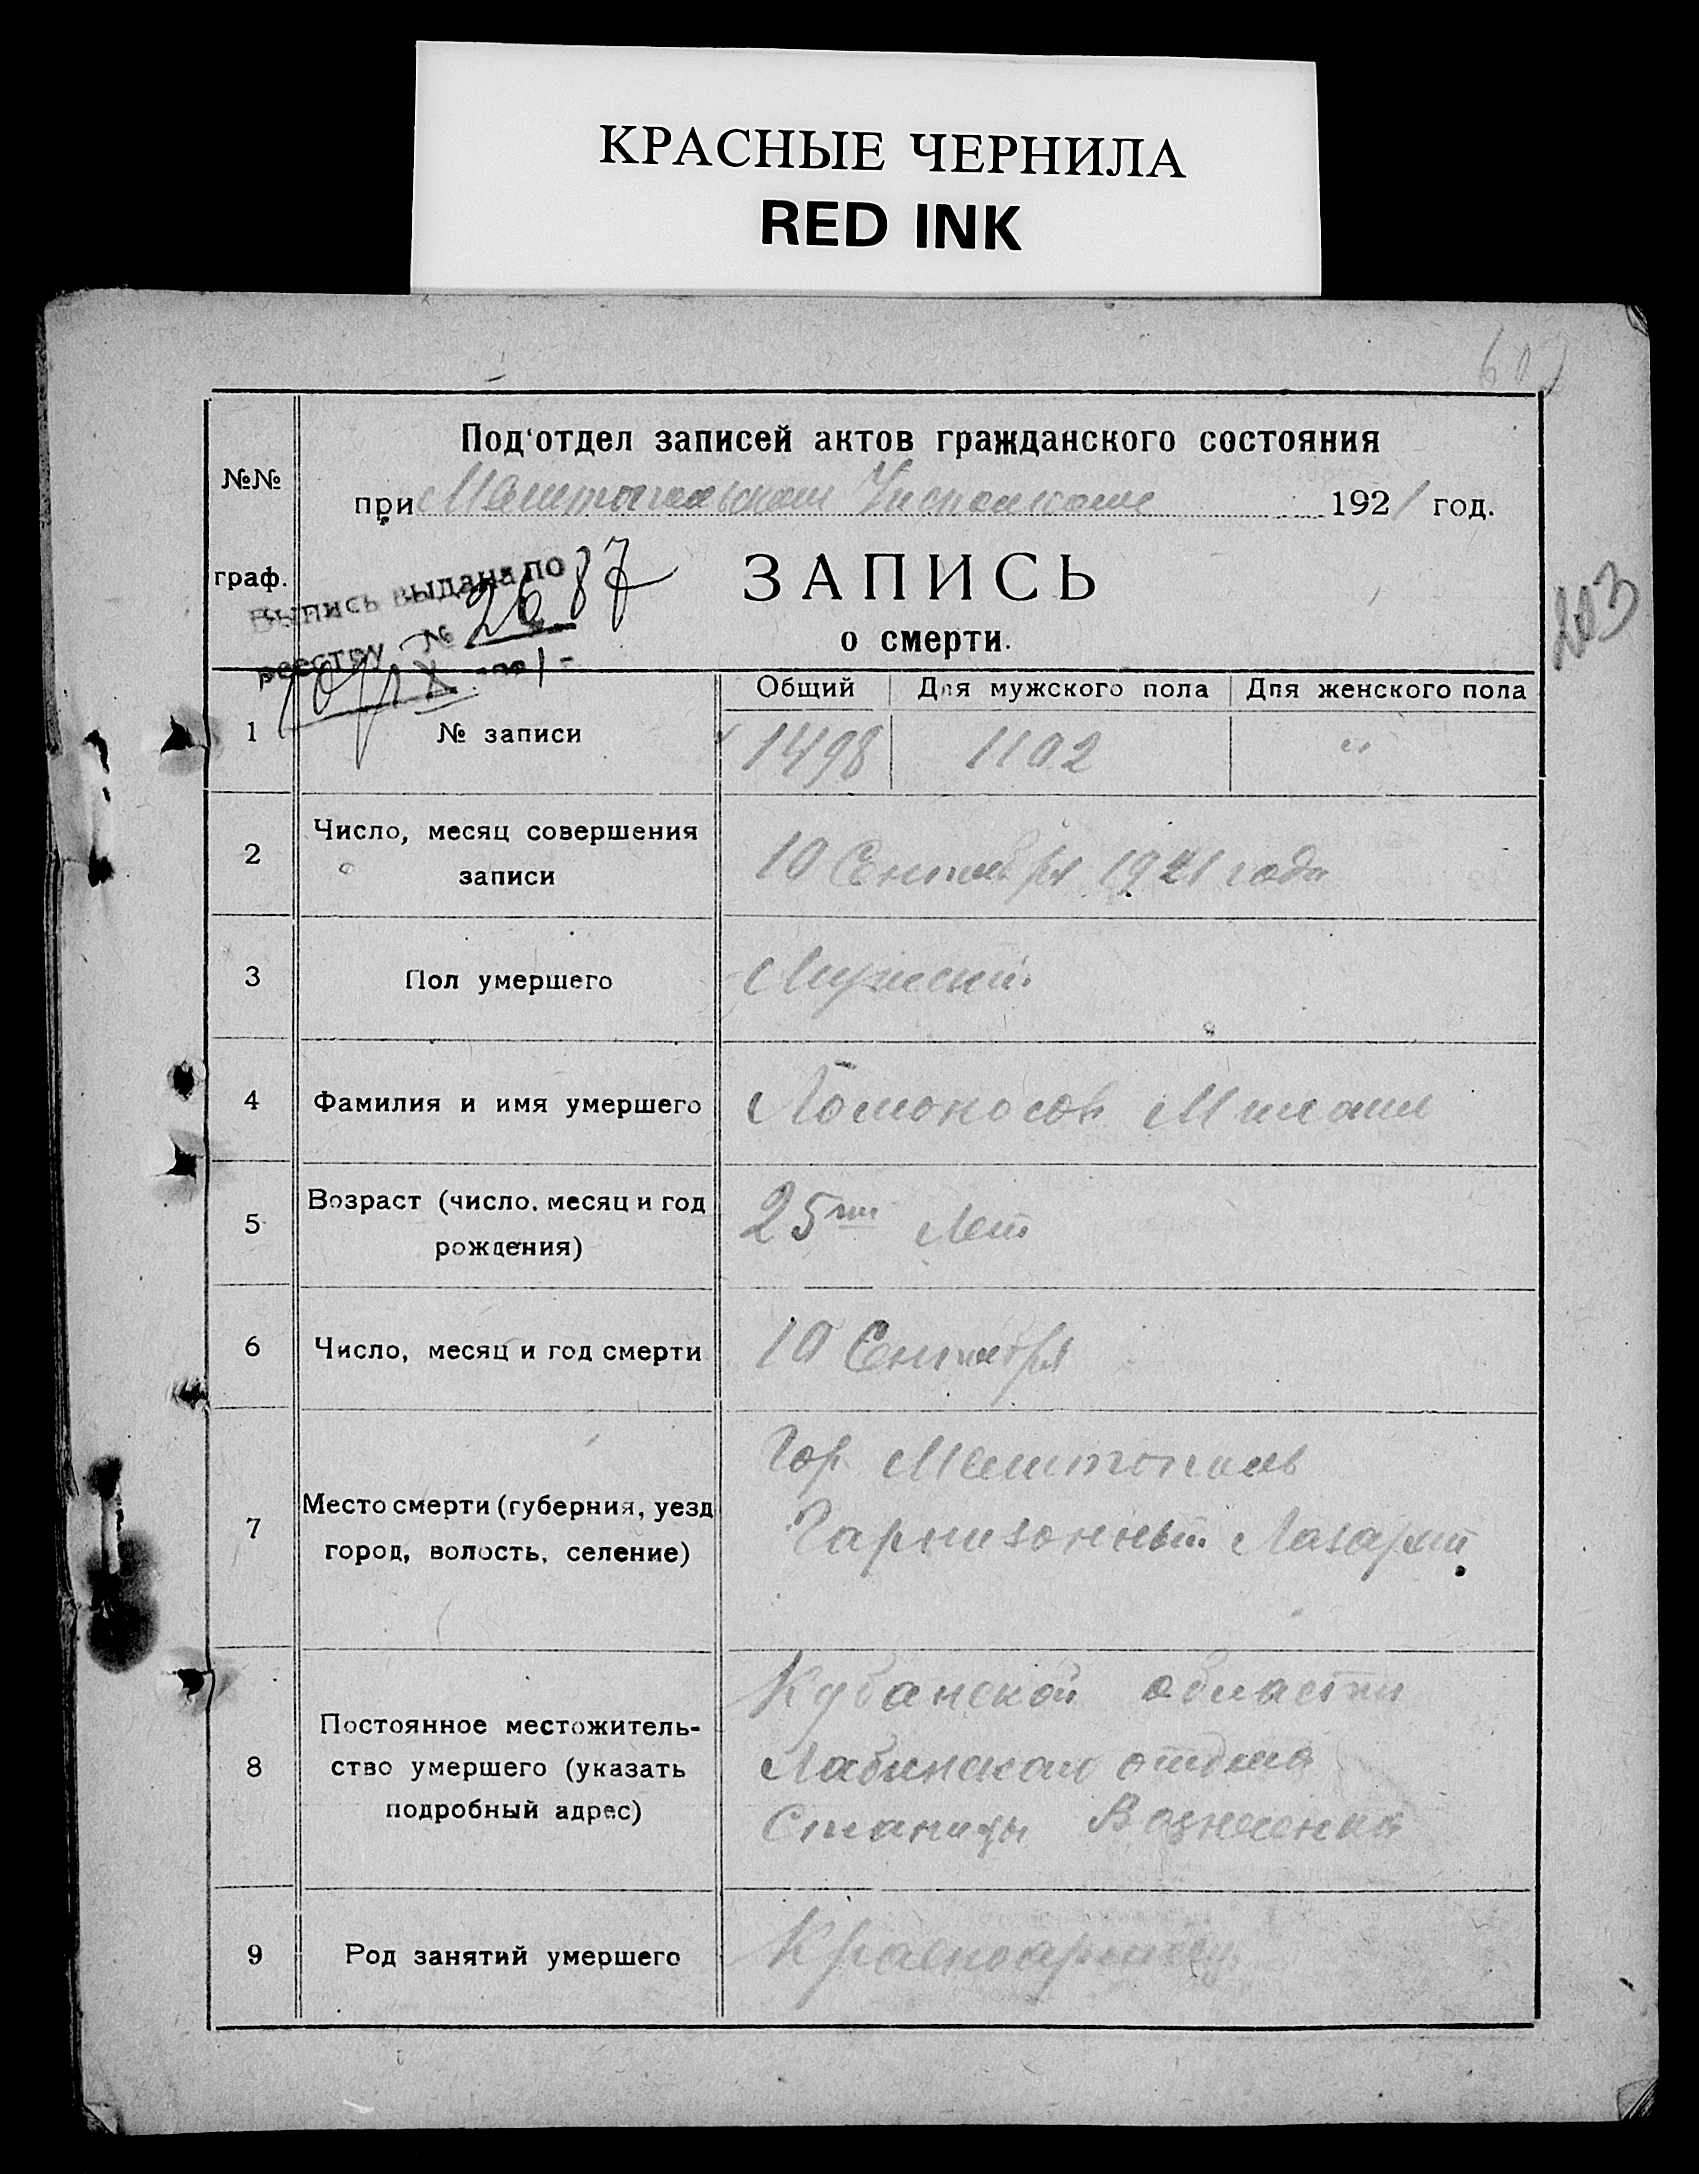 КРАСНЫЕ ЧЕРНИЛА
RED INK
602
Под'отдел записей актов гражданского состояния
№№
при Мелитопольском Исполкоме 1921 год.
граф.
ЗАПИСЬ
о смерти.
Выпись выдана по
реестру № 2687
203
Общий Для мужского пола Для женского пола
1 № записи 1498 1102 "
2 Число, месяц совершения
записи
10 Сентября 1921 года
3 Пол умершего Мужской
4 Фамилия и имя умершего Ломоносов Михаил
5 Возраст (число, месяц и год
рождения)
25ти Лет
6 Число, месяц и год смерти 10 Сентября
7 Место смерти (губерния, уезд
город, волость, селение)
Гор. Мелитополь
Гарнизонный Лазарет
8 Постоянное местожитель-
ство умершего (указать
подробный адрес)
Кубанской области
Лабинскаго отдела
Станицы
9 Род занятий умершего Красноармеец